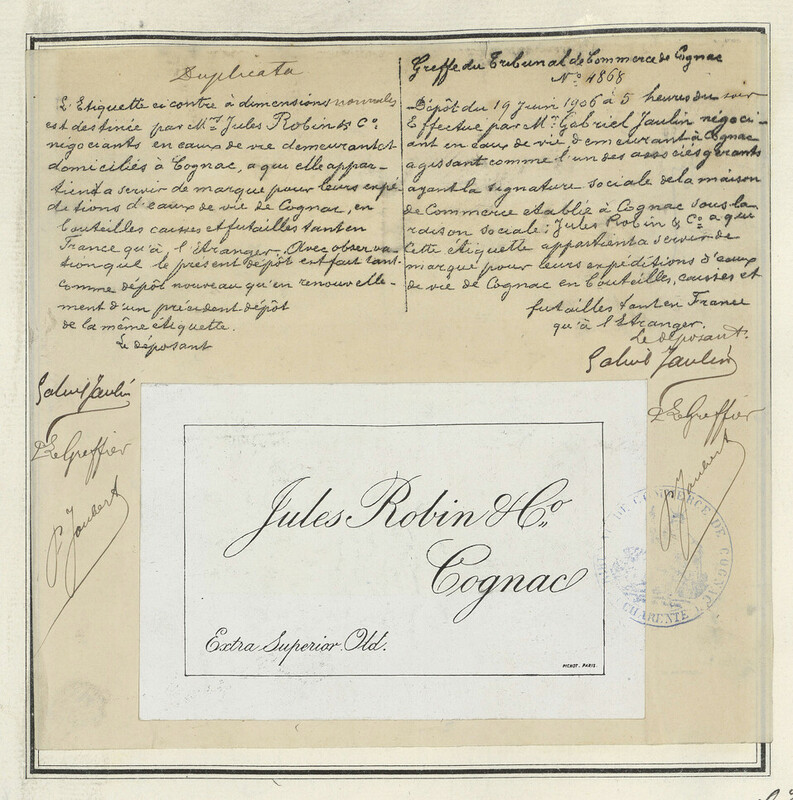 Duplicata
L'Etiquette ci contre à dimensions nouvelles
est destinée par Mrs Jules Robin & Co.
négociants en eaux de vie demeurant et
domiciliés à Cognac, a qui elle appar-
tient a servir de marque pour leurs expé-
ditions d'eaux de vie de Cognac, en
bouteilles caisses et futailles tant en
France qu'à l'Etranger. Avec observa-
tion que le présent dépôt est fait tant
comme dépôt nouveau qu'en renouvelle-
ment d'un précédent dépôt
de la même étiquette.
Le déposant
Gabriel Jaulin
P. Le Greffier
P. Joubert
Greffe du Tribunal de Commerce de Cognac
No 4868
Dépôt du 19 Juin 1906 à 5 heures du soir
Effectué par Mr Gabriel Jaulin négoci-
ant en eaux de vie demeurant à Cognac
agissant comme l'un des associés gérants
ayant la signature sociale de la maison
de Commerce établie à Cognac sous la
raison sociale: Jules Robin & Co. a qui
cette étiquette appartient a servir de
marque pour leurs expéditions d'eaux
de vie de Cognac en bouteilles, caisses et
futailles tant en France
qu'à l'Etranger.
Le déposant.
Gabriel Jaulin
P. Le Greffier
P. Joubert
Jules Robin & Co.
Cognac
Extra Superior Old.
PICHOT. PARIS.
DE COMMERCE DE COGNAC
CHARENTE